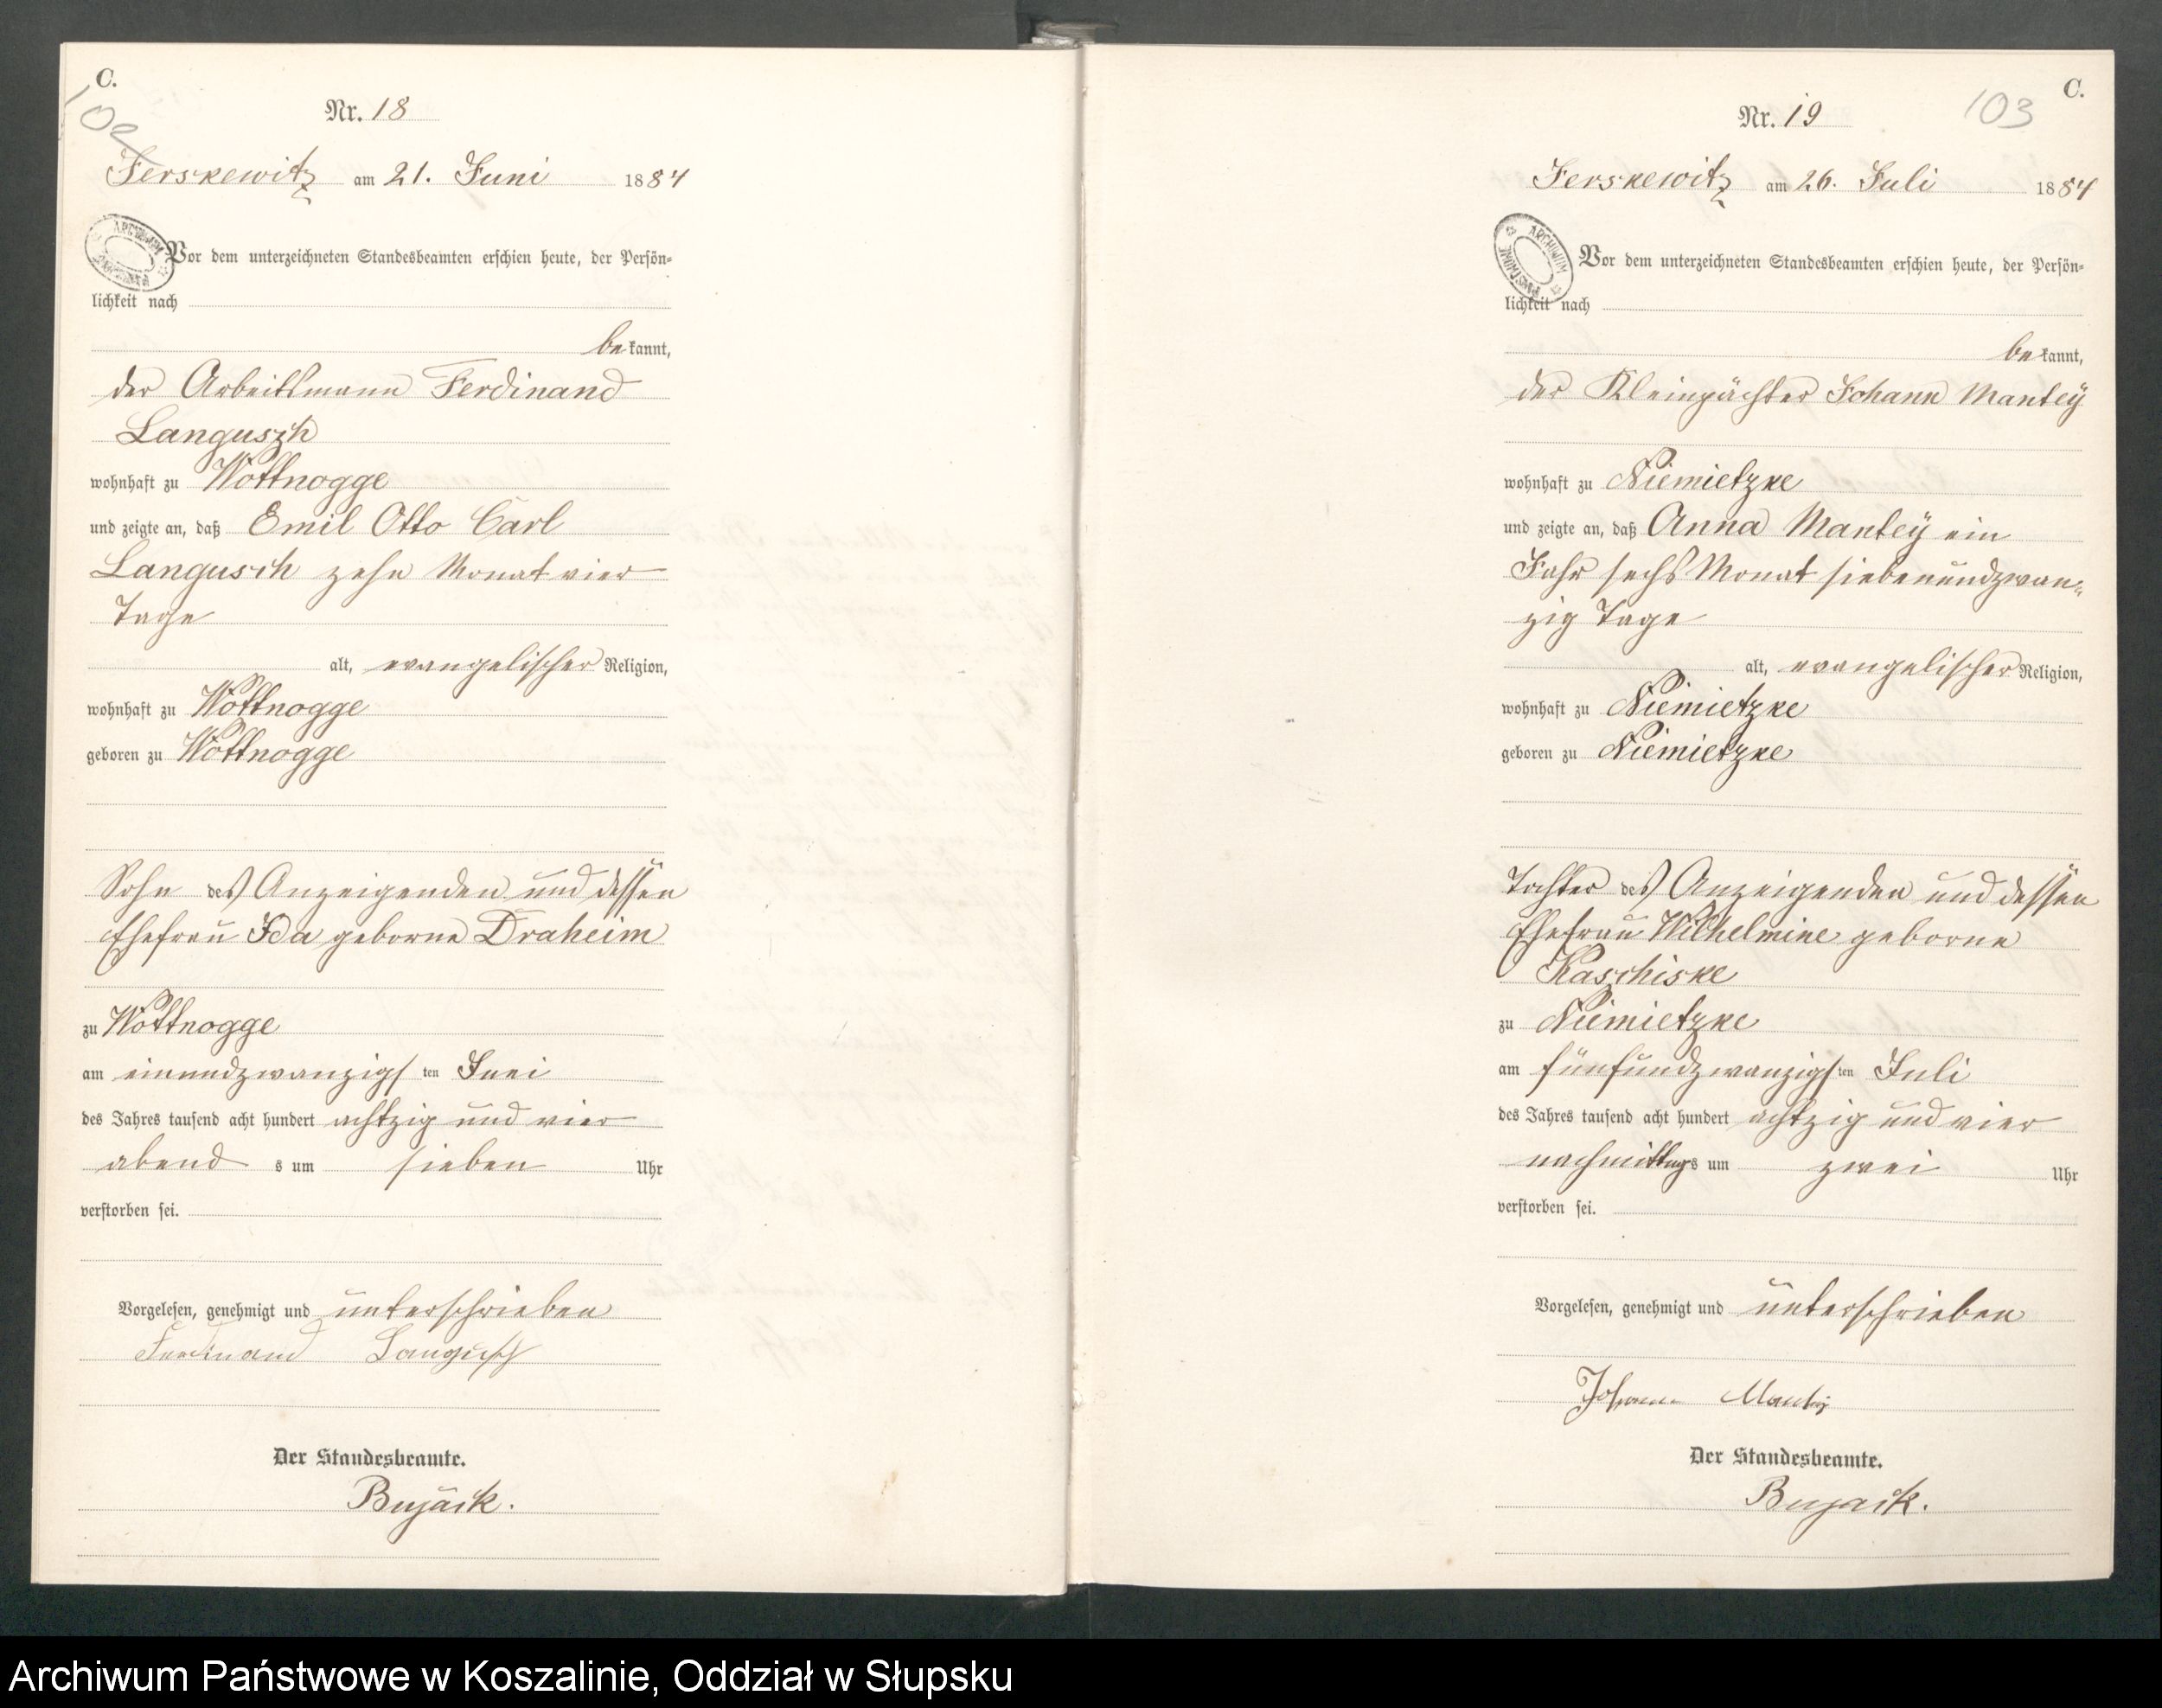 C.
102
Nr. 18
Jerskewitz am 21. Juni 1884
ARCHIWUM PAŃSTWOWE
Vor dem unterzeichneten Standesbeamten erschien heute, der Persön=
lichkeit nach
bekannt,
der Arbeitsmann Ferdinand
Languszh
wohnhaft zu Wottnogge
und zeigte an, daß Emil Otto Carl
Langusch zehn Monat vier
Tage
alt, evangelischer Religion,
wohnhaft zu Wottnogge
geboren zu Wottnogge
Sohn des Anzeigenden und dessen
Ehefrau Ida geborne Draheim
zu Wottnogge
am einundzwanzigsten Juni
des Jahres tausend acht hundert achtzig und vier
abends um sieben Uhr
verstorben sei.
Vorgelesen, genehmigt und unterschrieben
Ferdinand Langusch
Der Standesbeamte.
Bujack.
C.
103
Nr. 19
Jerskewitz am 26. Juli 1884
ARCHIWUM PAŃSTWOWE
Vor dem unterzeichneten Standesbeamten erschien heute, der Persön=
lichkeit nach
bekannt,
der Kleinpächter Johann Mantey
wohnhaft zu Niemietzke
und zeigte an, daß Anna Mantey ein
Jahr sechs Monat siebenundzwan=
zig Tage
alt, evangelischer Religion,
wohnhaft zu Niemietzke
geboren zu Niemietzke
Tochter des Anzeigenden und dessen
Ehefrau Wilhelmine geborne
Kaschiske
zu Niemietzke
am fünfundzwanzigsten Juli
des Jahres tausend acht hundert achtzig und vier
nachmittags um zwei Uhr
verstorben sei.
Vorgelesen, genehmigt und unterschrieben
Johann Mantey
Der Standesbeamte.
Bujack.
Archiwum Państwowe w Koszalinie, Oddział w Słupsku